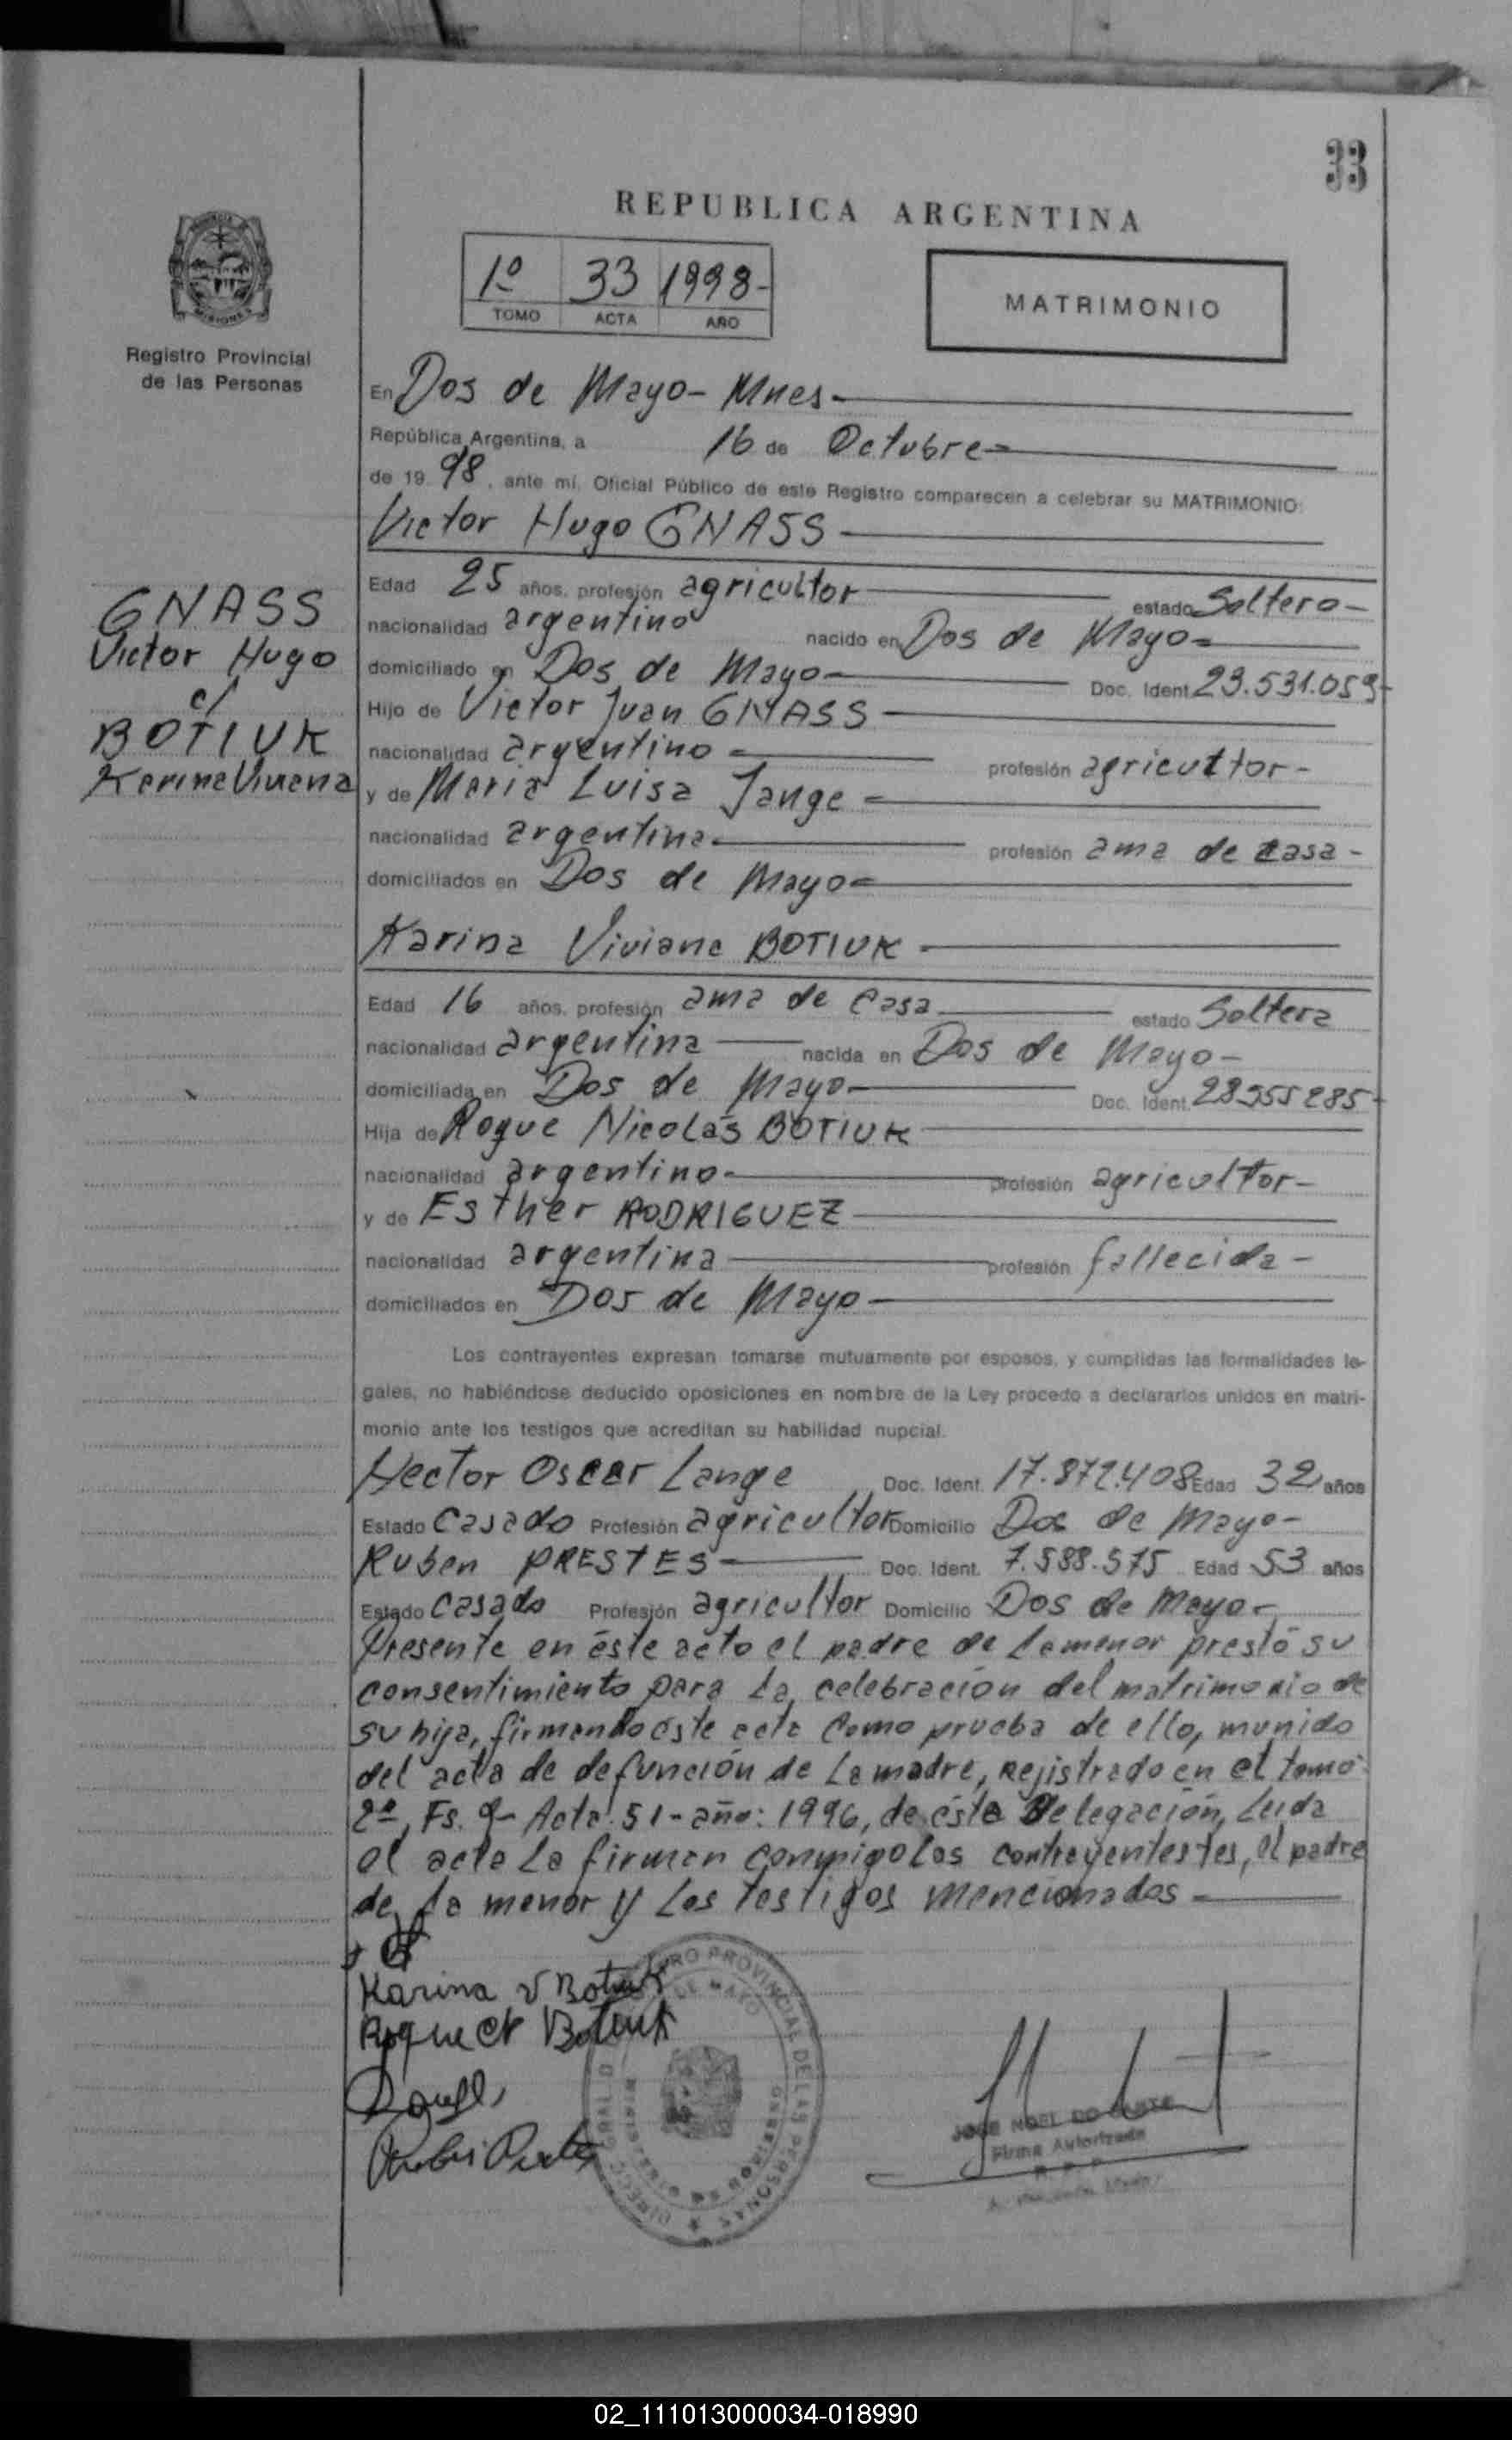 33
REPUBLICA ARGENTINA
1º 33 1998-
TOMO ACTA AÑO
MATRIMONIO
MISIONES
Registro Provincial
de las Personas
En Dos de Mayo- Mnes-
República Argentina, a 16 de Octubre-
de 1998, ante mí, Oficial Público de este Registro comparecen a celebrar su MATRIMONIO:
Victor Hugo GNASS
Edad 25 años, profesión agricultor estado Soltero-
GNASS
Victor Hugo
c/
BOTIUK
nacionalidad argentino nacido en Dos de Mayo-
domiciliado en Dos de Mayo- Doc. Ident. 23.531.059-
Hijo de Victor Juan GNASS
nacionalidad argentino- profesión agricultor-
y de Maria Luisa Jange-
nacionalidad argentina- profesión ama de casa-
domiciliados en Dos de Mayo-
Karina Viviana BOTIUK-
Edad 16 años, profesión ama de casa estado Soltera
nacionalidad argentina nacida en Dos de Mayo-
domiciliada en Dos de Mayo- Doc. Ident. 28955285-
Hija de Roque Nicolás BOTIUK
nacionalidad argentino- profesión agricultor-
y de Esther RODRIGUEZ
nacionalidad argentina profesión fallecida-
domiciliados en Dos de Mayo
Los contrayentes expresan tomarse mutuamente por esposos, y cumplidas las formalidades le-
gales, no habiéndose deducido oposiciones en nombre de la Ley procedo a declararlos unidos en matri-
monio ante los testigos que acreditan su habilidad nupcial.
Hector Oscar Lange Doc. Ident. 17.872.408 Edad 32 años
Estado Casado Profesión agricultor Domicilio Dos de Mayo-
Ruben PRESTES Doc. Ident. 7.588.575 Edad 53 años
Estado Casado Profesión agricultor Domicilio Dos de Mayo-
Presente en éste acto el padre de la menor prestó su
consentimiento para la celebración del matrimonio de
su hija, firmando éste acta como prueba de ello, munido
del acta de defunción de la madre, rejistrado en el tomo:
2º, Fs. 9- Acta: 51- año: 1996, de ésta Delegación, Leida
el acta la firman conmigo los contreyentestes, el padre
de la menor y los testigos mencionados-
Karina V Botiuk
Roque N Botiuk
REGISTRO PROVINCIAL DE LAS PERSONAS
JOSE NOEL DO CANTE
Firma Autorizada
R. P. P.
02_111013000034-018990